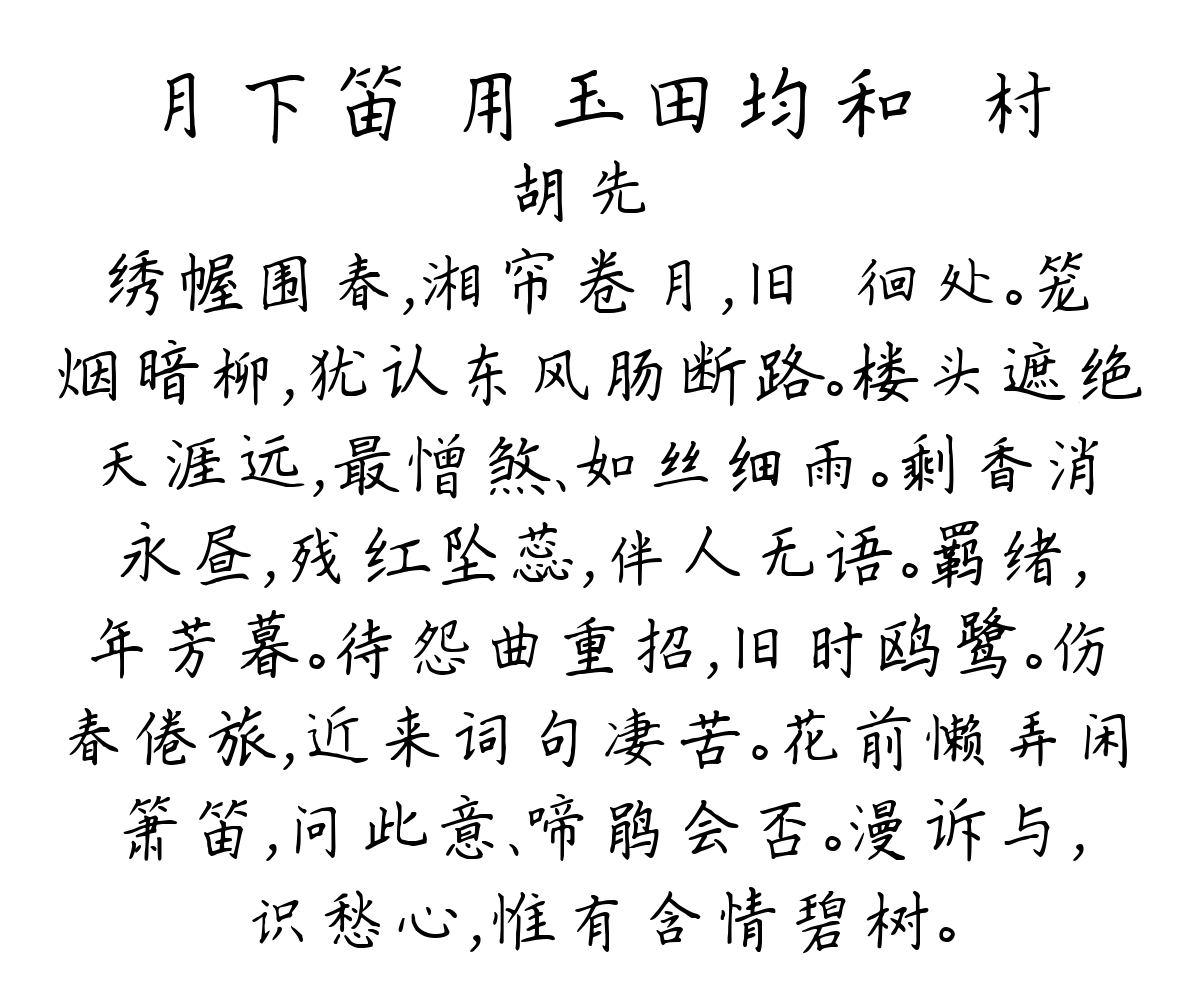 月下笛 用玉田均和 村
胡先
绣幄围春,湘帘卷月,旧 徊处。笼
烟暗柳,犹认东风肠断路。楼头遮绝
天涯远,最憎煞、如丝细雨。剩香消
永昼,残红坠蕊,伴人无语。羁绪,
年芳暮。待怨曲重招,旧时鸥鹭。伤
春倦旅,近来词句凄苦。花前懒弄闲
箫笛,问此意、啼鹃会否。漫诉与,
识愁心,惟有含情碧树。